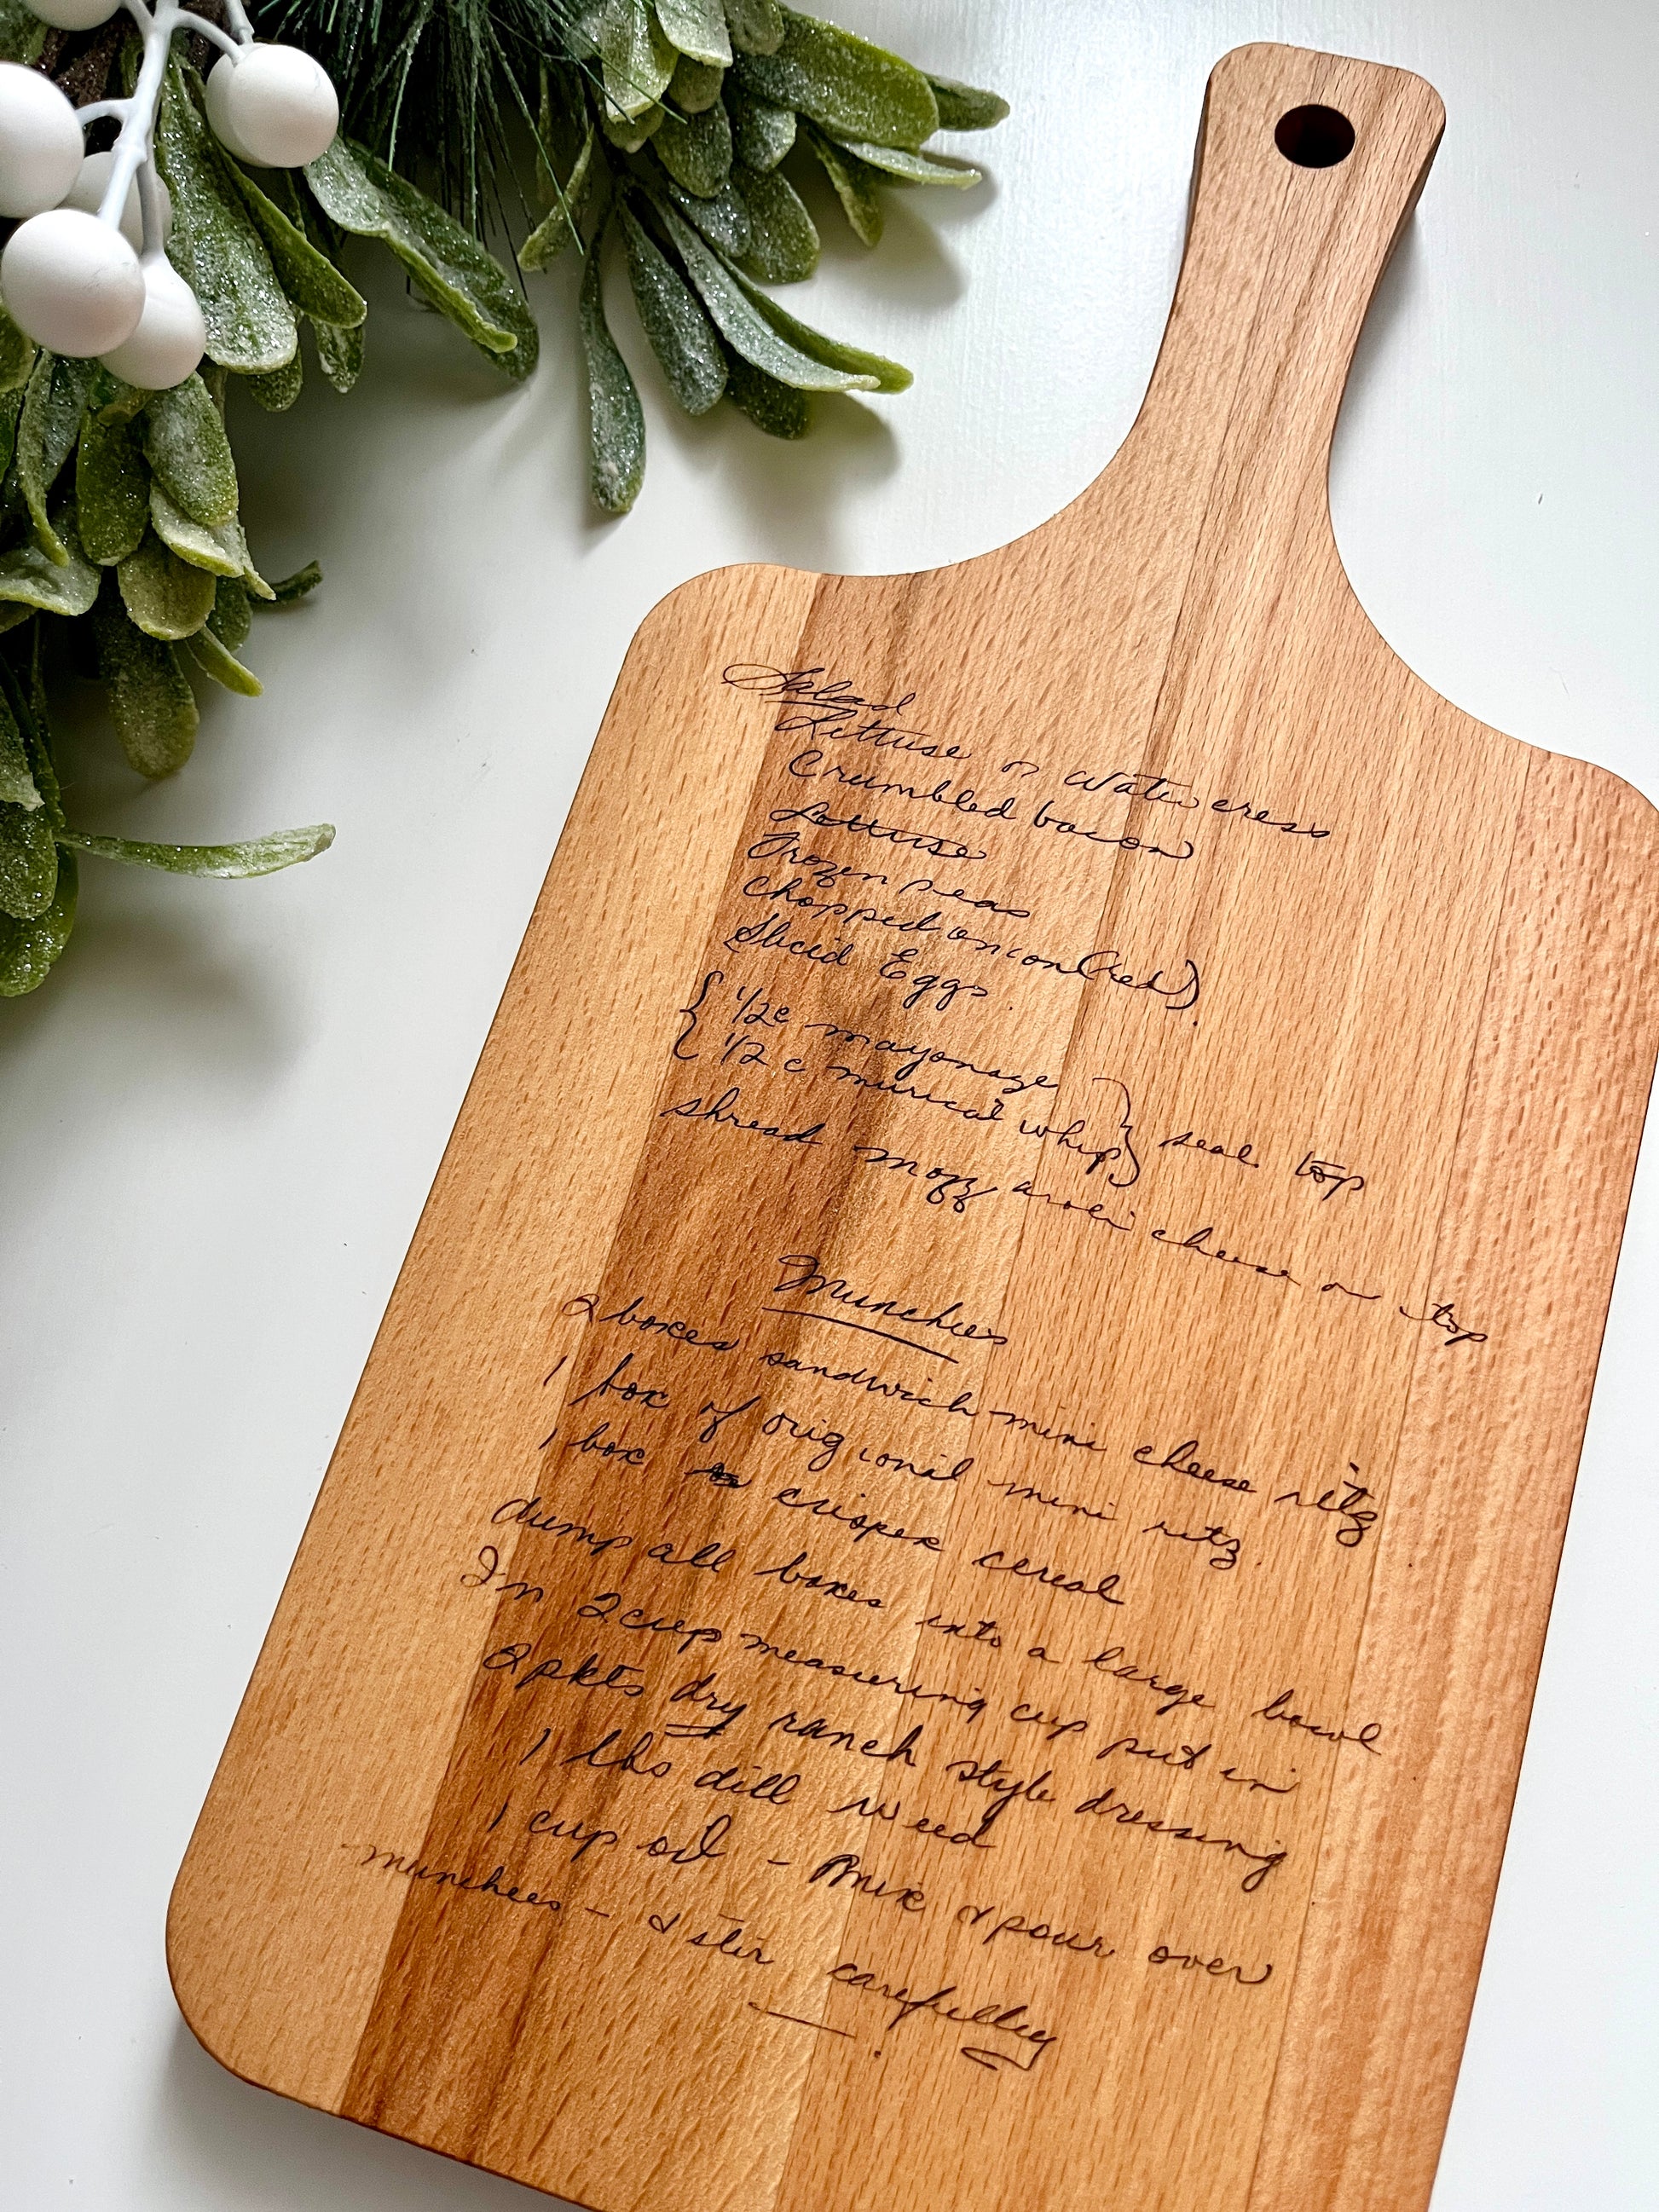 Salad
Lettuse or Water cress
Crumbled bacon
Lettuse
Frozen peas
Chopped onion (red).
Sliced Eggs.
{ 1/2 c mayonaze
{ 1/2 c mirical whip } seal top
shread mozz cheese on top
Munchies
2 boxes sandwich mini cheese ritz
1 box of origional mini ritz.
1 box crispex cereal
dump all boxes into a large bowl
In 2 cup measuring cup put in
2 pkts dry ranch style dressing
1 tbs dill weed
1 cup oil - Mix & pour over
munchees - & stir carefulley